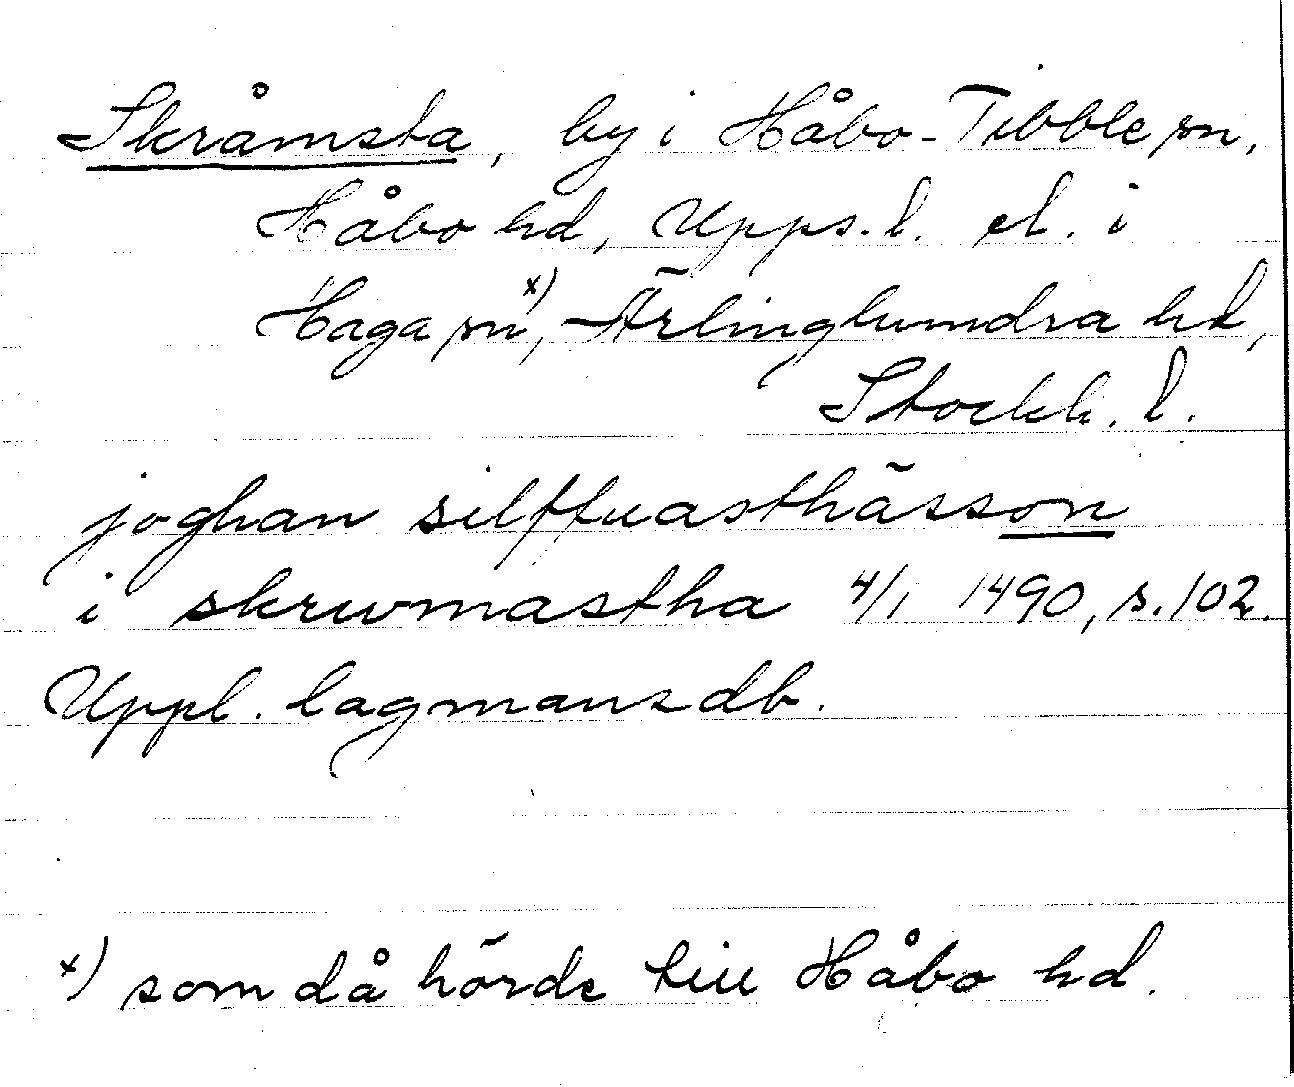 Skråmsta, by i Håbo-Tibble sn,
Håbo hd, Upps. l. el. i
Haga sn x), Ärlinghundra hd,
Stockh. l.
joghan silffuasthässon
i skrwmastha 4/1 1490, s. 102.
Uppl. lagmansdb.
x) som då hörde till Håbo hd.